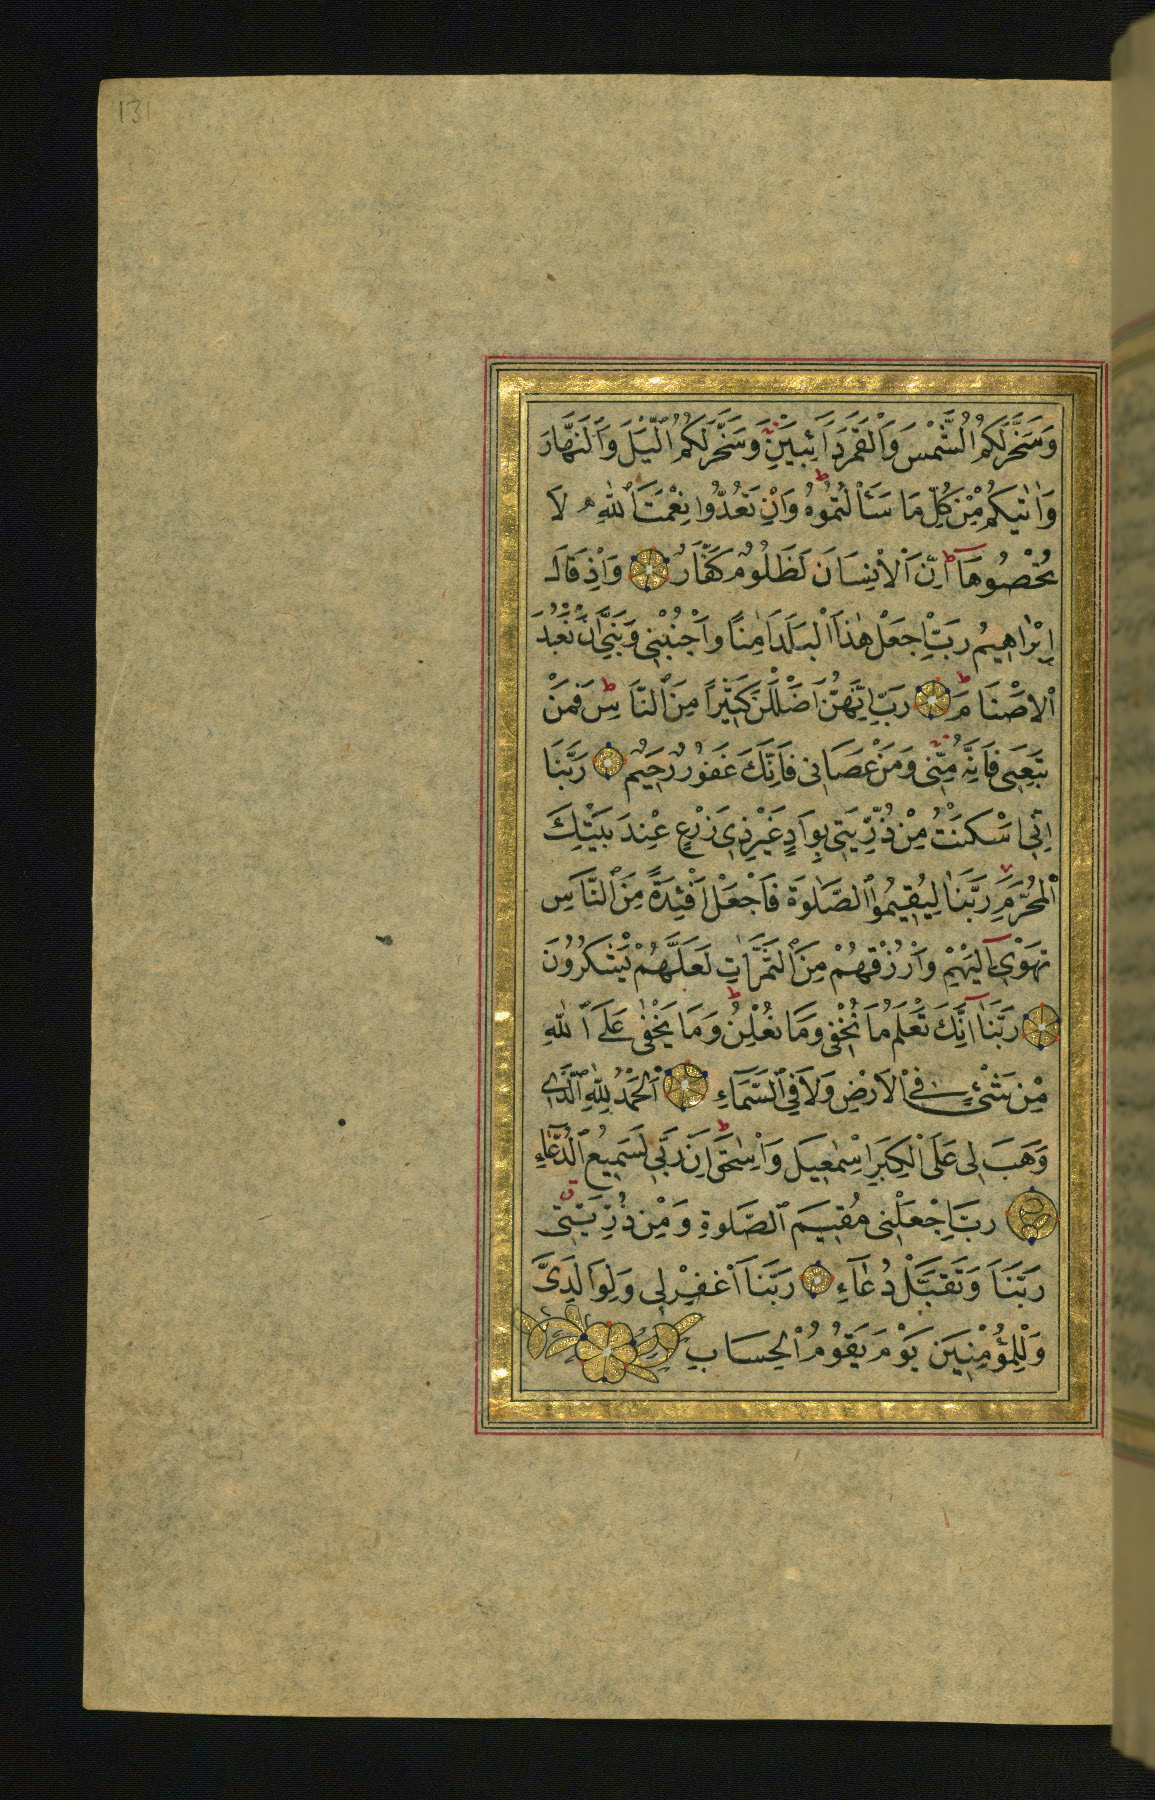 131
وَسَخَّرَ لَكُمُ الشَّمْسَ وَالْقَمَرَ دَائِبَيْنِ وَسَخَّرَ لَكُمُ اللَّيْلَ وَالنَّهَارَ
وَاٰتٰيكُمْ مِنْ كُلِّ مَا سَئَاَلْتُمُوهُ وَاِنْ تَعُدُّوا نِعْمَتَ اللّٰهِ لَا
تُحْصُوهَا اِنَّ الْاِنْسَانَ لَظَلُومٌ كَفَّارٌ وَاِذْ قَالَ
اِبْرٰاهِيمُ رَبِّ اجْعَلْ هٰذَا الْبَلَدَ اٰمِنًا وَاجْنُبْنِى وَبَنِىَّ اَنْ نَعْبُدَ
الْاَصْنَامَ رَبِّ اِنَّهُنَّ اَضْلَلْنَ كَثِيرًا مِنَ النَّاسِ فَمَنْ
تَبِعَنِى فَاِنَّهُ مِنِّى وَمَنْ عَصَانِى فَاِنَّكَ غَفُورٌ رَحِيمٌ رَبَّنَا
اِنِّى اَسْكَنْتُ مِنْ ذُرِّيَّتِى بِوَادٍ غَيْرِ ذِى زَرْعٍ عِنْدَ بَيْتِكَ
الْمُحَرَّمِ رَبَّنَا لِيُقِيمُوا الصَّلٰوةَ فَاجْعَلْ اَفْئِدَةً مِنَ النَّاسِ
تَهْوِى اِلَيْهِمْ وَارْزُقْهُمْ مِنَ الثَّمَرَاتِ لَعَلَّهُمْ يَشْكُرُونَ
رَبَّنَا اِنَّكَ تَعْلَمُ مَا نُخْفِى وَمَا نُعْلِنُ وَمَا يَخْفٰى عَلَى اللّٰهِ
مِنْ شَىْءٍ فِى الْاَرْضِ وَلَا فِى السَّمَاءِ اَلْحَمْدُ لِلّٰهِ الَّذِى
وَهَبَ لِى عَلَى الْكِبَرِ اِسْمٰعِيلَ وَاِسْحٰقَ اِنَّ رَبِّى لَسَمِيعُ الدُّعَاءِ
رَبِّ اجْعَلْنِى مُقِيمَ الصَّلٰوةِ وَمِنْ ذُرِّيَّتِى
رَبَّنَا وَتَقَبَّلْ دُعَاءِ رَبَّنَا اغْفِرْ لِى وَلِوَالِدَىَّ
وَلِلْمُؤْمِنِينَ يَوْمَ يَقُومُ الْحِسَابُ